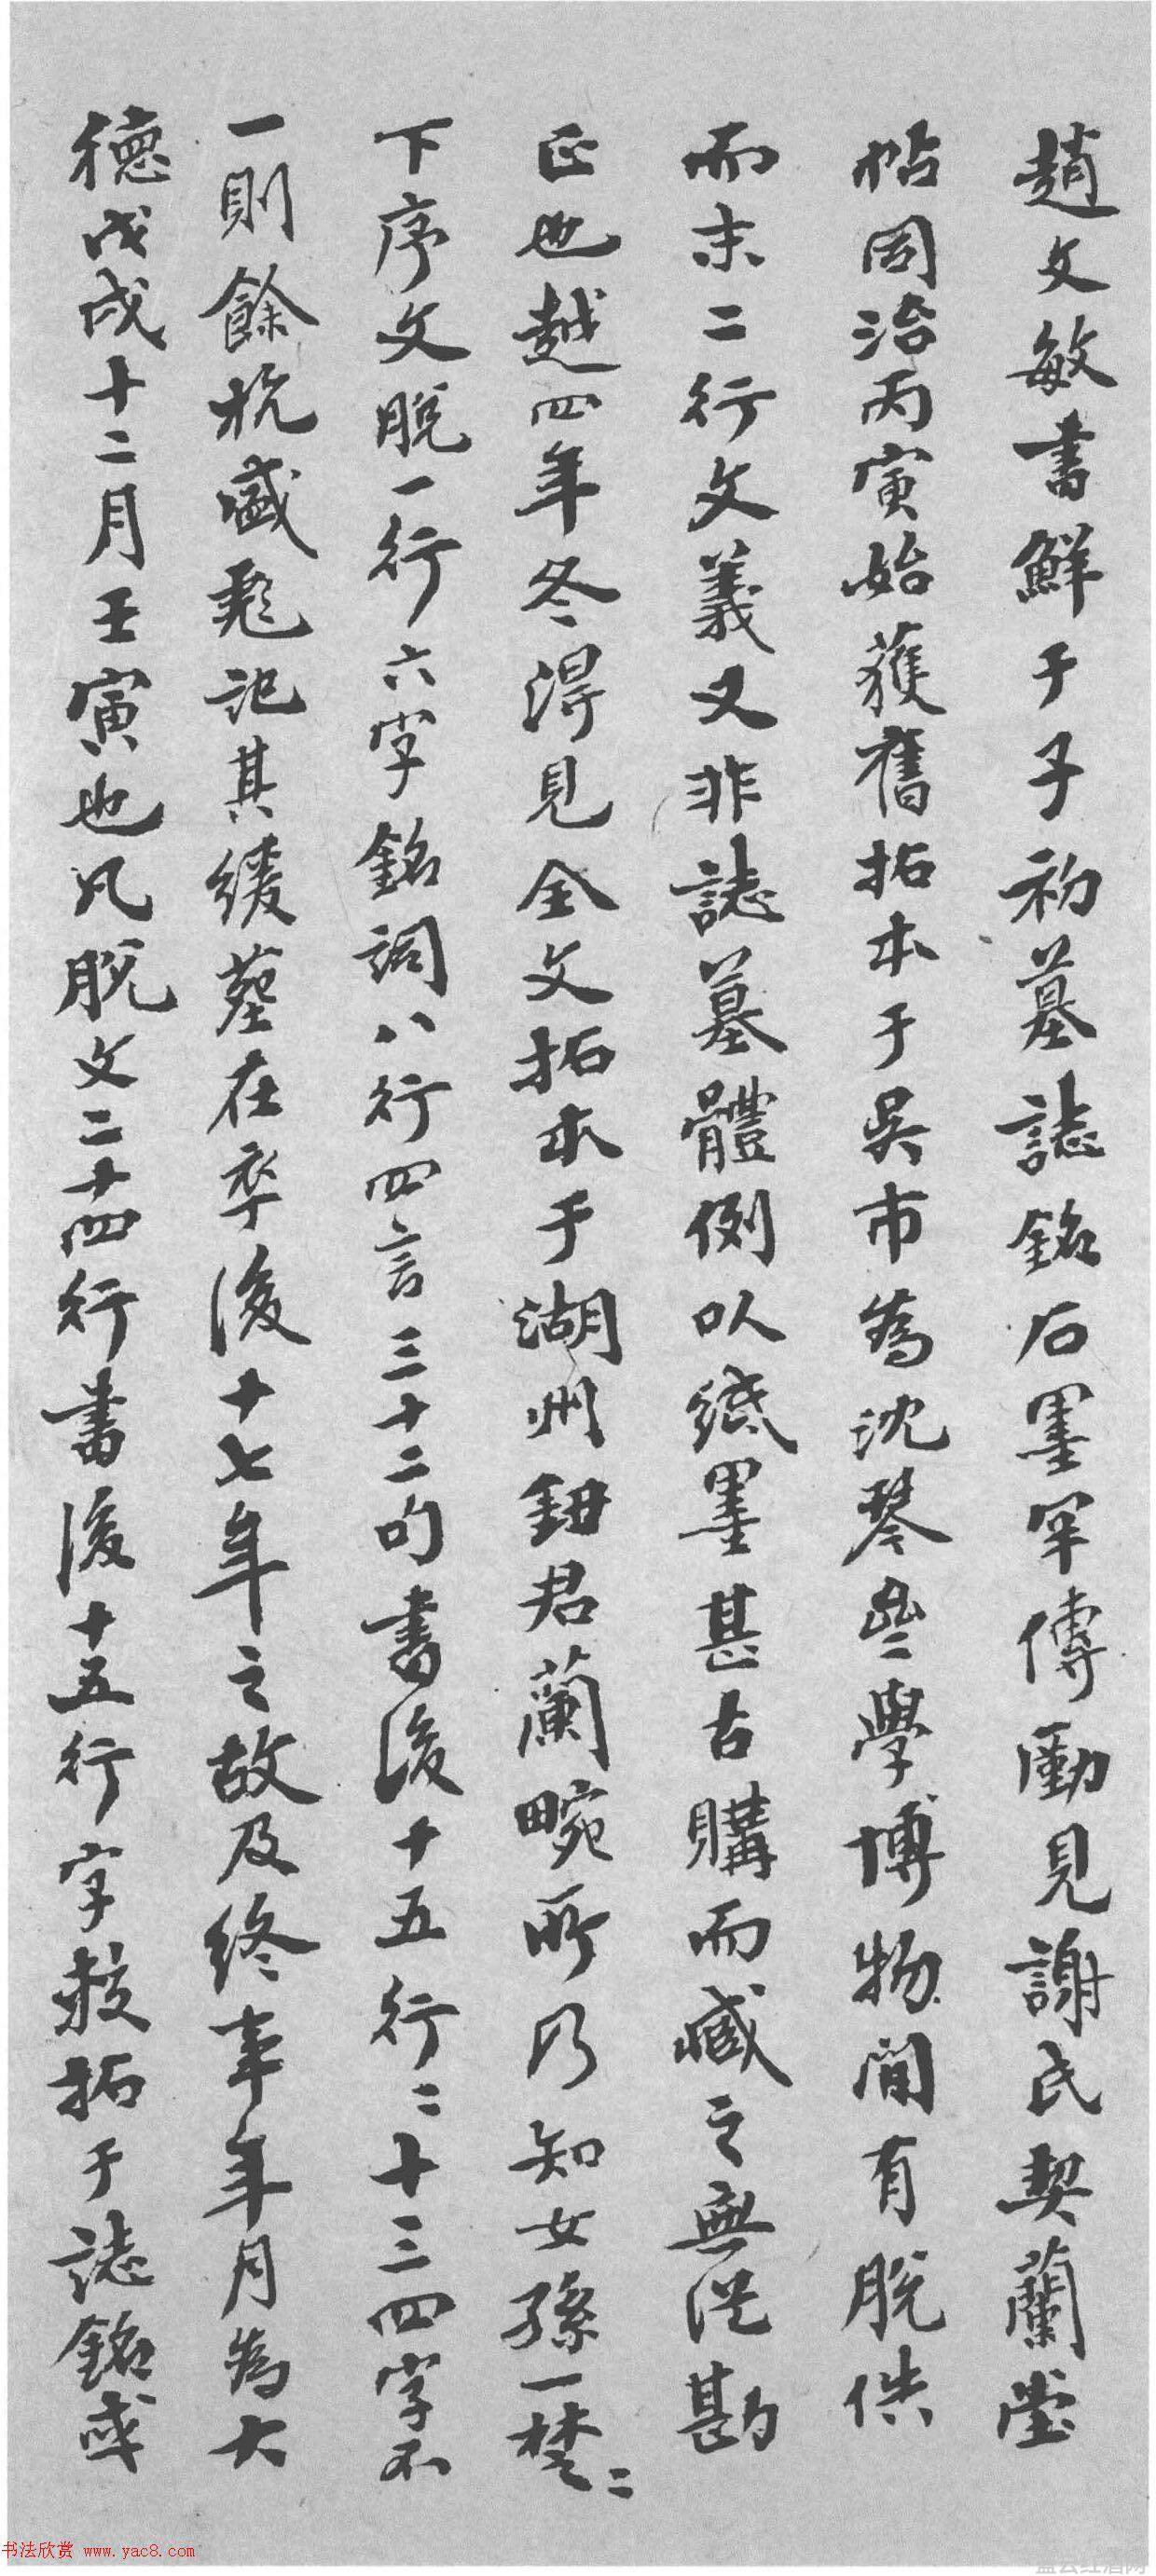 趙文敏書鮮于子初墓誌銘石墨罕傳勵見謝氏契蘭堂
帖同治丙寅始獲舊拓本于吳市為沈琴學博物間有脫佚
而末二行文義又非誌墓體例以紙墨甚古購而臧之無從勘
正也越四年冬得見全文拓本于湖州鈕君蘭畹所乃知女孫一楚二
下序文脫一行六字銘詞八行四言三十二句書後十五行二十三四字不
一則餘杭盛彪記其緩葬在卒後十七年之故及終事年月為大
德戊戌十二月壬寅也凡脫文二十四行書後十五行字拓于誌銘或
书法欣赏 www.yac8.com